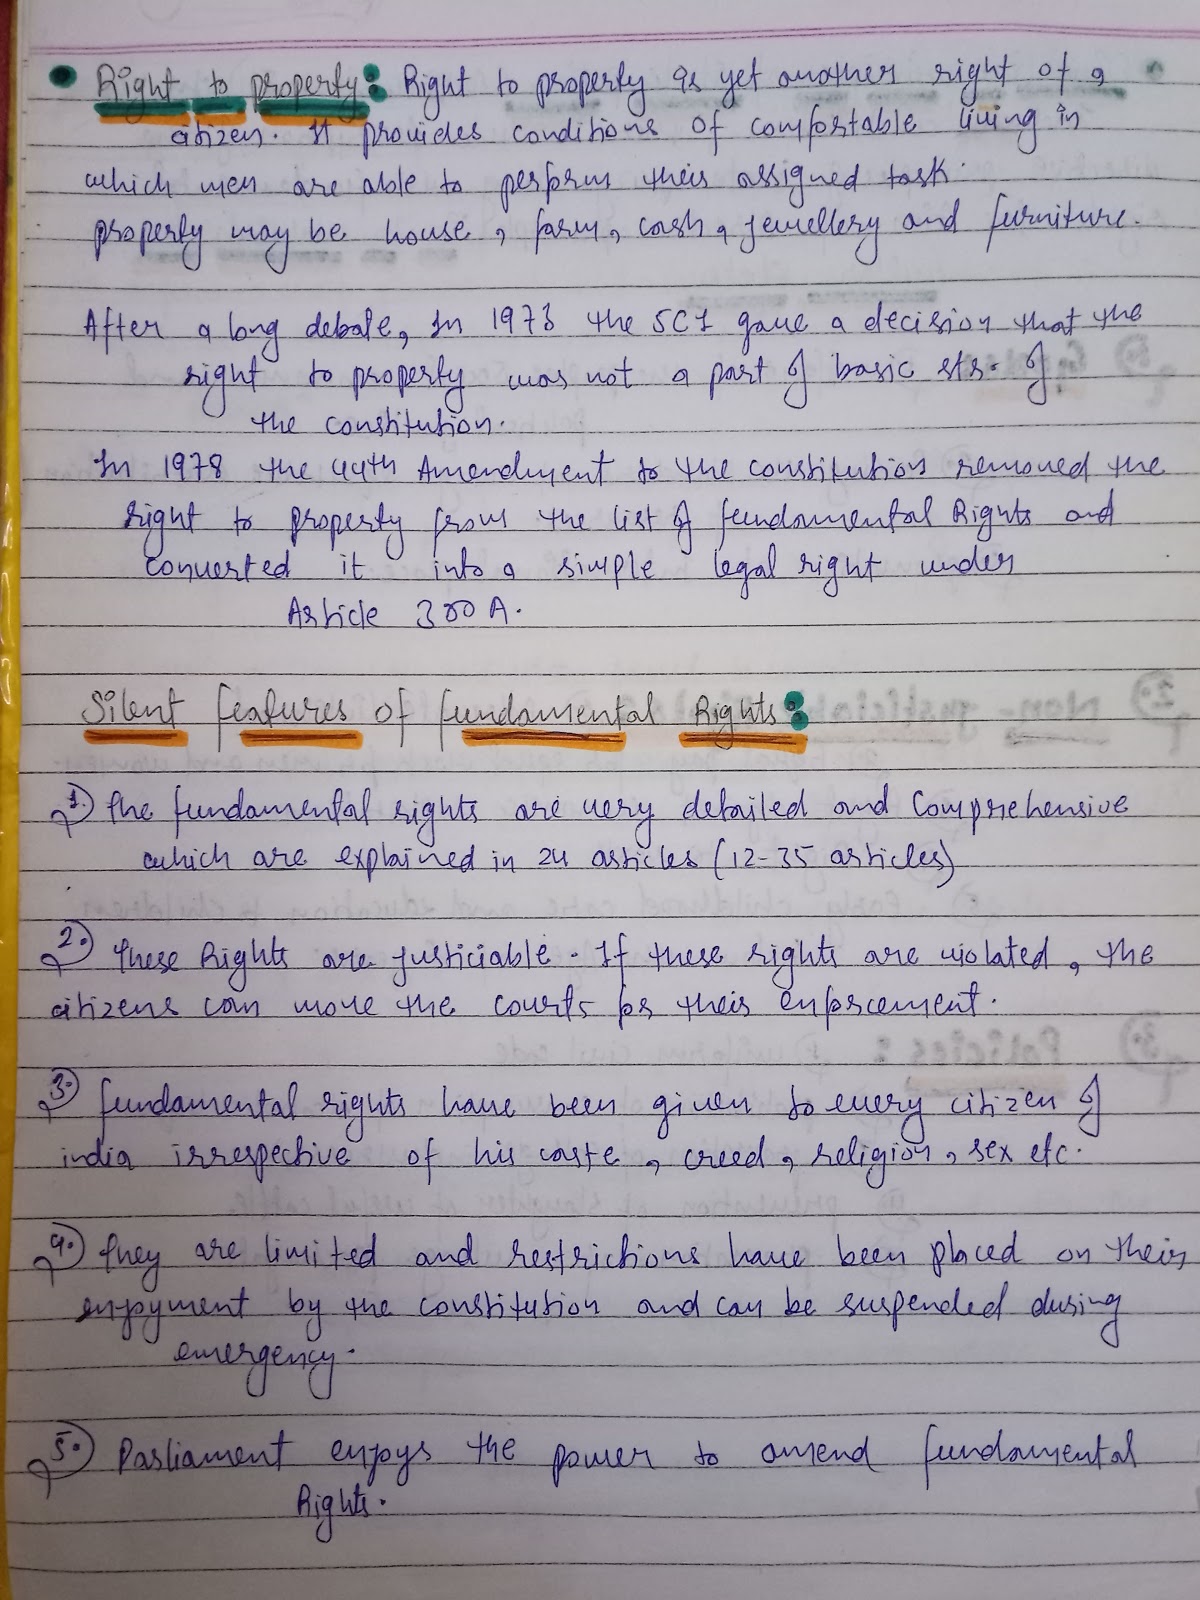 • Right to property: Right to property is yet another right of a
citizen. It provides conditions of comfortable living in
which men are able to perform their assigned task.
property may be house, farm, cash, jewellery and furniture.
After a long debate, In 1973 the SCI gave a decision that the
right to property was not a part of basic str. of
the constitution.
In 1978 the 44th Amendment to the constitution removed the
right to property from the list of fundamental Rights and
converted it into a simple legal right under
Article 300 A.
Silent features of fundamental Rights:
1. The fundamental rights are very detailed and Comprehensive
which are explained in 24 articles (12-35 articles)
2. These Rights are justiciable. If these rights are violated, the
citizens can move the courts for their enforcement.
3. fundamental rights have been given to every citizen of
india irrespective of his caste, creed, religion, sex etc.
4. They are limited and restrictions have been placed on their
enjoyment by the constitution and can be suspended during
emergency.
5. Parliament enjoys the power to amend fundamental
Rights.